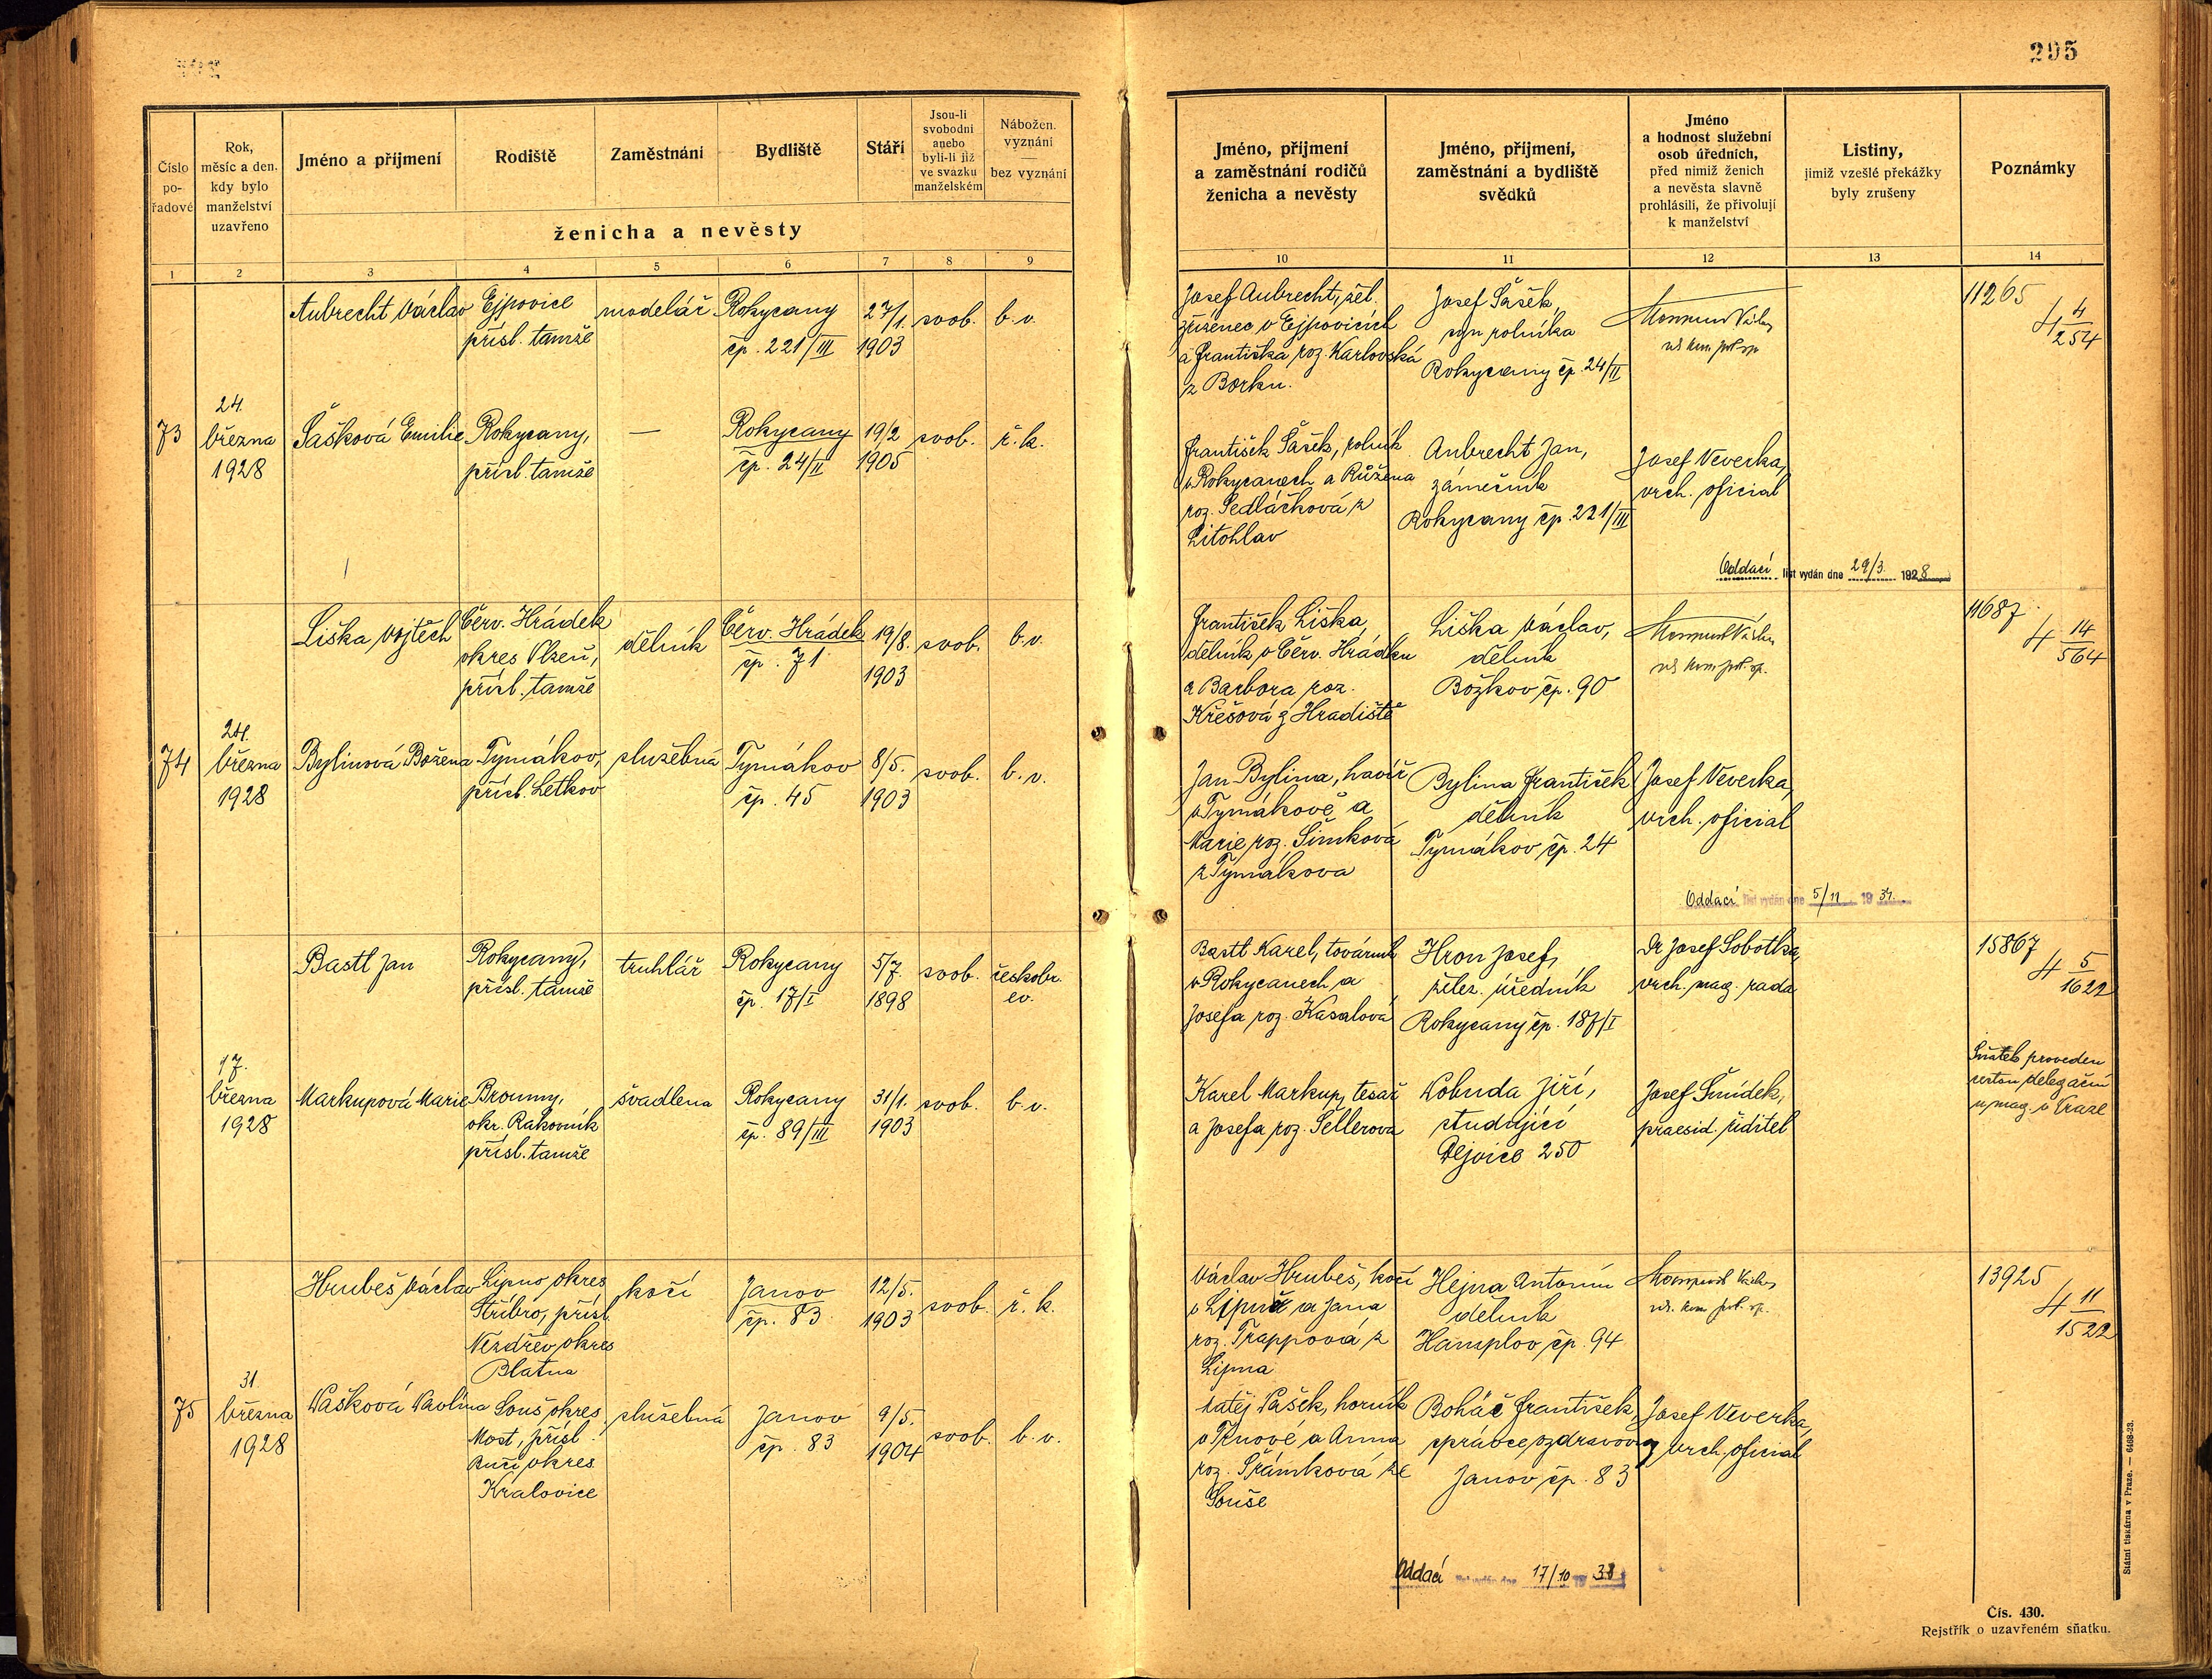 295
Číslo
po-
řadové
Rok,
měsíc a den.
kdy bylo
manželství
uzavřeno
Jméno a příjmení
Rodiště
Zaměstnání
Bydliště
Stáří
Jsou-li
svobodni
anebo
byli-li již
ve svazku
manželském
Nábožen.
vyznání
bez vyznání
ženicha a nevěsty
1 2 3 4 5 6 7 8 9
Jméno, příjmení
a zaměstnání rodičů
ženicha a nevěsty
Jméno, příjmení,
zaměstnání a bydliště
svědků
Jméno
a hodnost služební
osob úředních,
před nimiž ženich
a nevěsta slavně
prohlásili, že přivolují
k manželství
Listiny,
jimiž vzešlé překážky
byly zrušeny
Poznámky
10 11 12 13 14
73
24.
března
1928
Aubrecht Václav
Ejpovice
přísl. tamže
modelář
Rokycany
čp. 221/III
27/1.
1903
svob.
b. v.
Josef Aubrecht, žel.
zřízenec v Ejpovicích
a Františka roz. Karlovská
z Borku.
Josef Šašek,
syn rolníka
Rokycany čp. 24/II
11265
4 4/254
Šašková Emilie
Rokycany,
přísl. tamže
—
Rokycany
čp. 24/II
19/2
1905
svob.
ř. k.
František Šašek, rolník
v Rokycanech a Růžena
roz. Sedláčková z
Litohlav
Aubrecht Jan,
zámečník
Rokycany čp. 221/III
Josef Veverka,
vrch. oficial
Oddací list vydán dne 29/3. 1928
74
24.
března
1928
Liška Vojtěch
Červ. Hrádek
okres Plzeň,
přísl. tamže
dělník
Červ. Hrádek
čp. 71
19/8.
1903
svob.
b. v.
František Liška,
dělník v Červ. Hrádku
a Barbora roz.
Křešová z Hradiště
Liška Václav,
dělník
Božkov čp. 90
11687
4 14/564
Bylinová Božena
Tymákov,
přísl. Letkov
služebná
Tymákov
čp. 45
8/5.
1903
svob.
b. v.
Jan Bylina, havíř
v Tymákově a
Marie roz. Šimková
z Tymákova
Bylina František
dělník
Tymákov čp. 24
Josef Veverka,
vrch. oficial
Oddací list vydán dne 5/11 1934.
17.
března
1928
Bastl Jan
Rokycany,
přísl. tamže
truhlář
Rokycany
čp. 17/I
5/7.
1898
svob.
českobr.
ev.
Bastl Karel, továrník
v Rokycanech a
Josefa roz. Kasalová
Hron Josef,
želez. úředník
Rokycany čp. 187/I
Dr Josef Sobotka,
vrch. mag. rada
15867
4 5/1622
Markupová Marie
Broumy,
okr. Rakovník
přísl. tamže
švadlena
Rokycany
čp. 89/III
31/1.
1903
svob.
b. v.
Karel Markup, tesař
a Josefa roz. Sellerova
Lobuda Jiří,
studující
Dejvice 250
Josef Šmídek,
praesid. řiditel
Sňatek proveden
cestou delegační
u mag. v Praze
75
31.
března
1928
Hrubeš Václav
Lipno okres
Stříbro, přísl.
Nezdřev okres
Blatna
kočí
Janov
čp. 83
12/5.
1903
svob.
ř. k.
Václav Hrubeš, kočí
v Lipně a Jana
roz. Trappová z
Lipna
Hejna Antonín
dělník
Hamplov čp. 94
13925
4 11/1522
Vašková Pavlína
Souš okres
Most, přísl.
Bučí okres
Kralovice
služebná
Janov
čp. 83
9/5.
1904
svob.
b. v.
Matěj Vašek, horník
v Trnové a Anna
roz. Šrámková ze
Souše
Boháč František,
správce ozdravovny
Janov čp. 83
Josef Veverka,
vrch. oficial
Oddací list vydán dne 17/10 1938
Státní tiskárna v Praze. — 6468-23.
Čís. 430.
Rejstřík o uzavřeném sňatku.